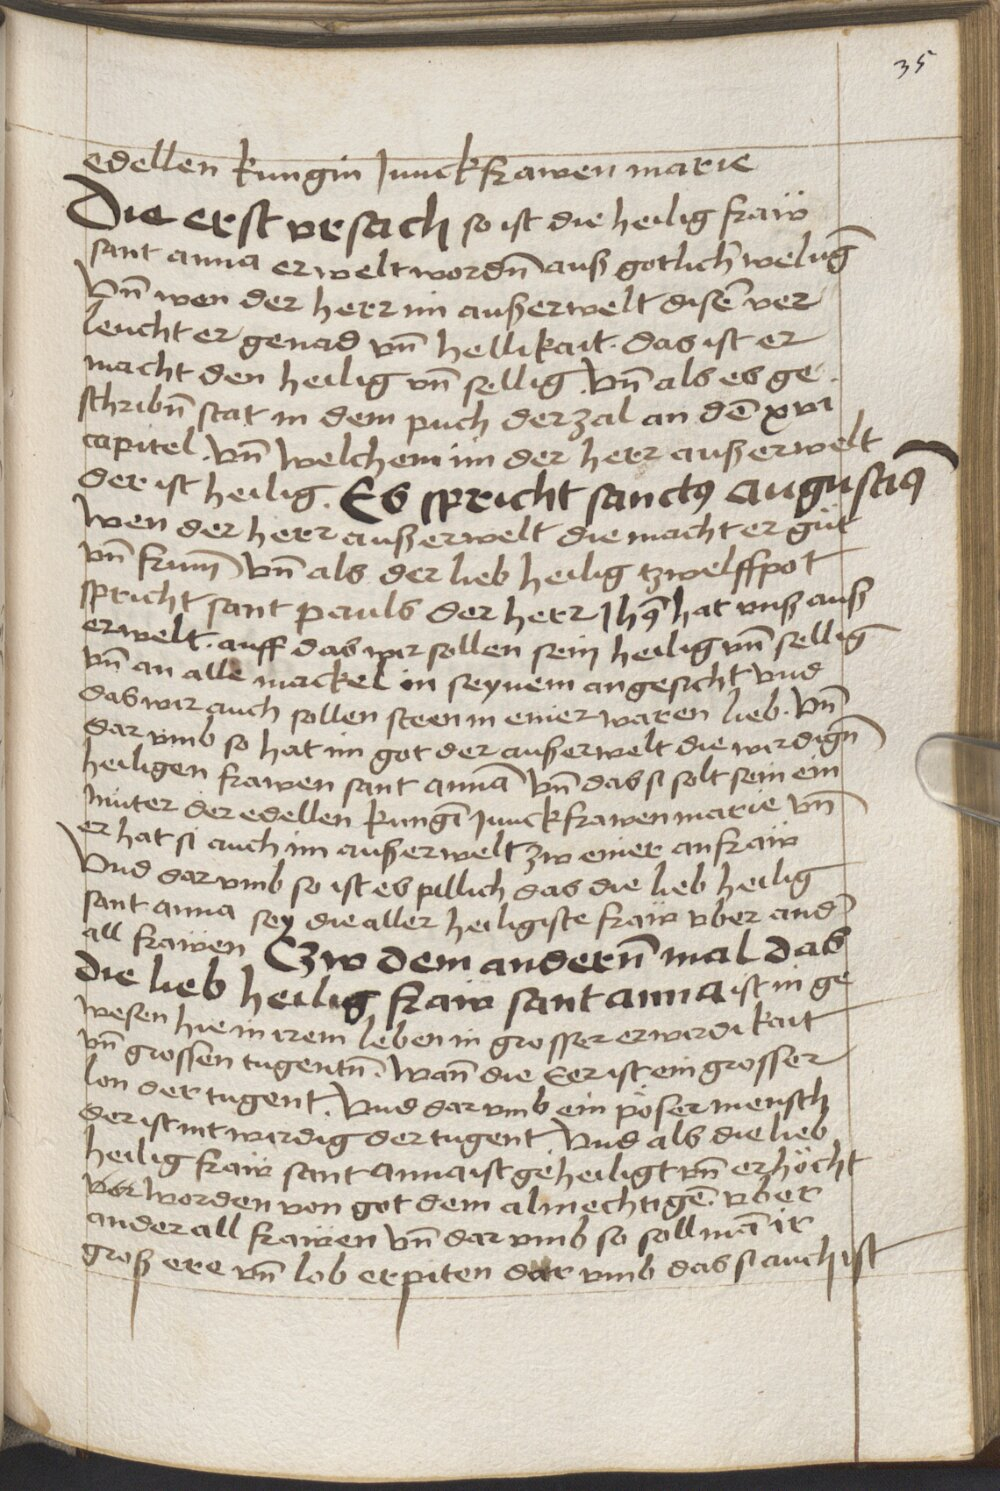 35
edellen kungin Junckfrawen marie
Die erst vrsach so ist die heilig fraẅ
sant anna erwelt wordn̄ auß gotlicħ welūg
Vn̄ wen der herr im außerwelt disē ver
leucht er genad vn̄ hellikait. das ist er
macht den heilig vn̄ sellig. Vn̄ als es ge
schribn̄ stat in dem puch der zal an dē xvi
capitel. Vn̄ welchem im der herr außerwelt
der ist heilig. Es spricht sanctꝯ Augustinꝯ
Wen der herr außerwelt die macht er güt
vn̄ frum̄ Vn̄ als der lieb heilig tzwelffpot
spricht sant pauls der herr Jhꝯ hat vnß auß
erwelt. auff das wir sollen sein heilig vn̄ sellig
vn̄ an alle mackel in seynem angesicht vnd
das wir auch sollen steen in einer waren lieb. Vn̄
dar vmb so hat im got der außerwelt die wirdign̄
heiligen frawen sant annā Vn̄ das si solt sein ein
muter der edellen kungī Junckfrawen marie Vn̄
er hat si auch im außerwelt zw einer anfraẅ
Vnd dar vmb so ist es pillich das die lieb heilig
sant anna sey die aller heiligiste fraẅ vber and̄
all fraẅen Tzw dem andern̄ mal das
die lieb heilig fraw sant anna ist in ge
wesen hie in irem leben in grosser erwirdikait
vn̄ grossen tugentn̄. Wan̄ die eer ist ein grosser
lon der tugent. Vnd dar vmb ein pöser mensch
der ist nit wirdig der tugent Vnd als die lieb
heilig fraẅ sant anna ist geheiligt vn̄ erhöcht
worden von got dem almechtigē. vber
ander all fraẅen Vn̄ dar vmb so soll mā ir
groß ere vn̄ lob erpiten dar vmb das si auch ist